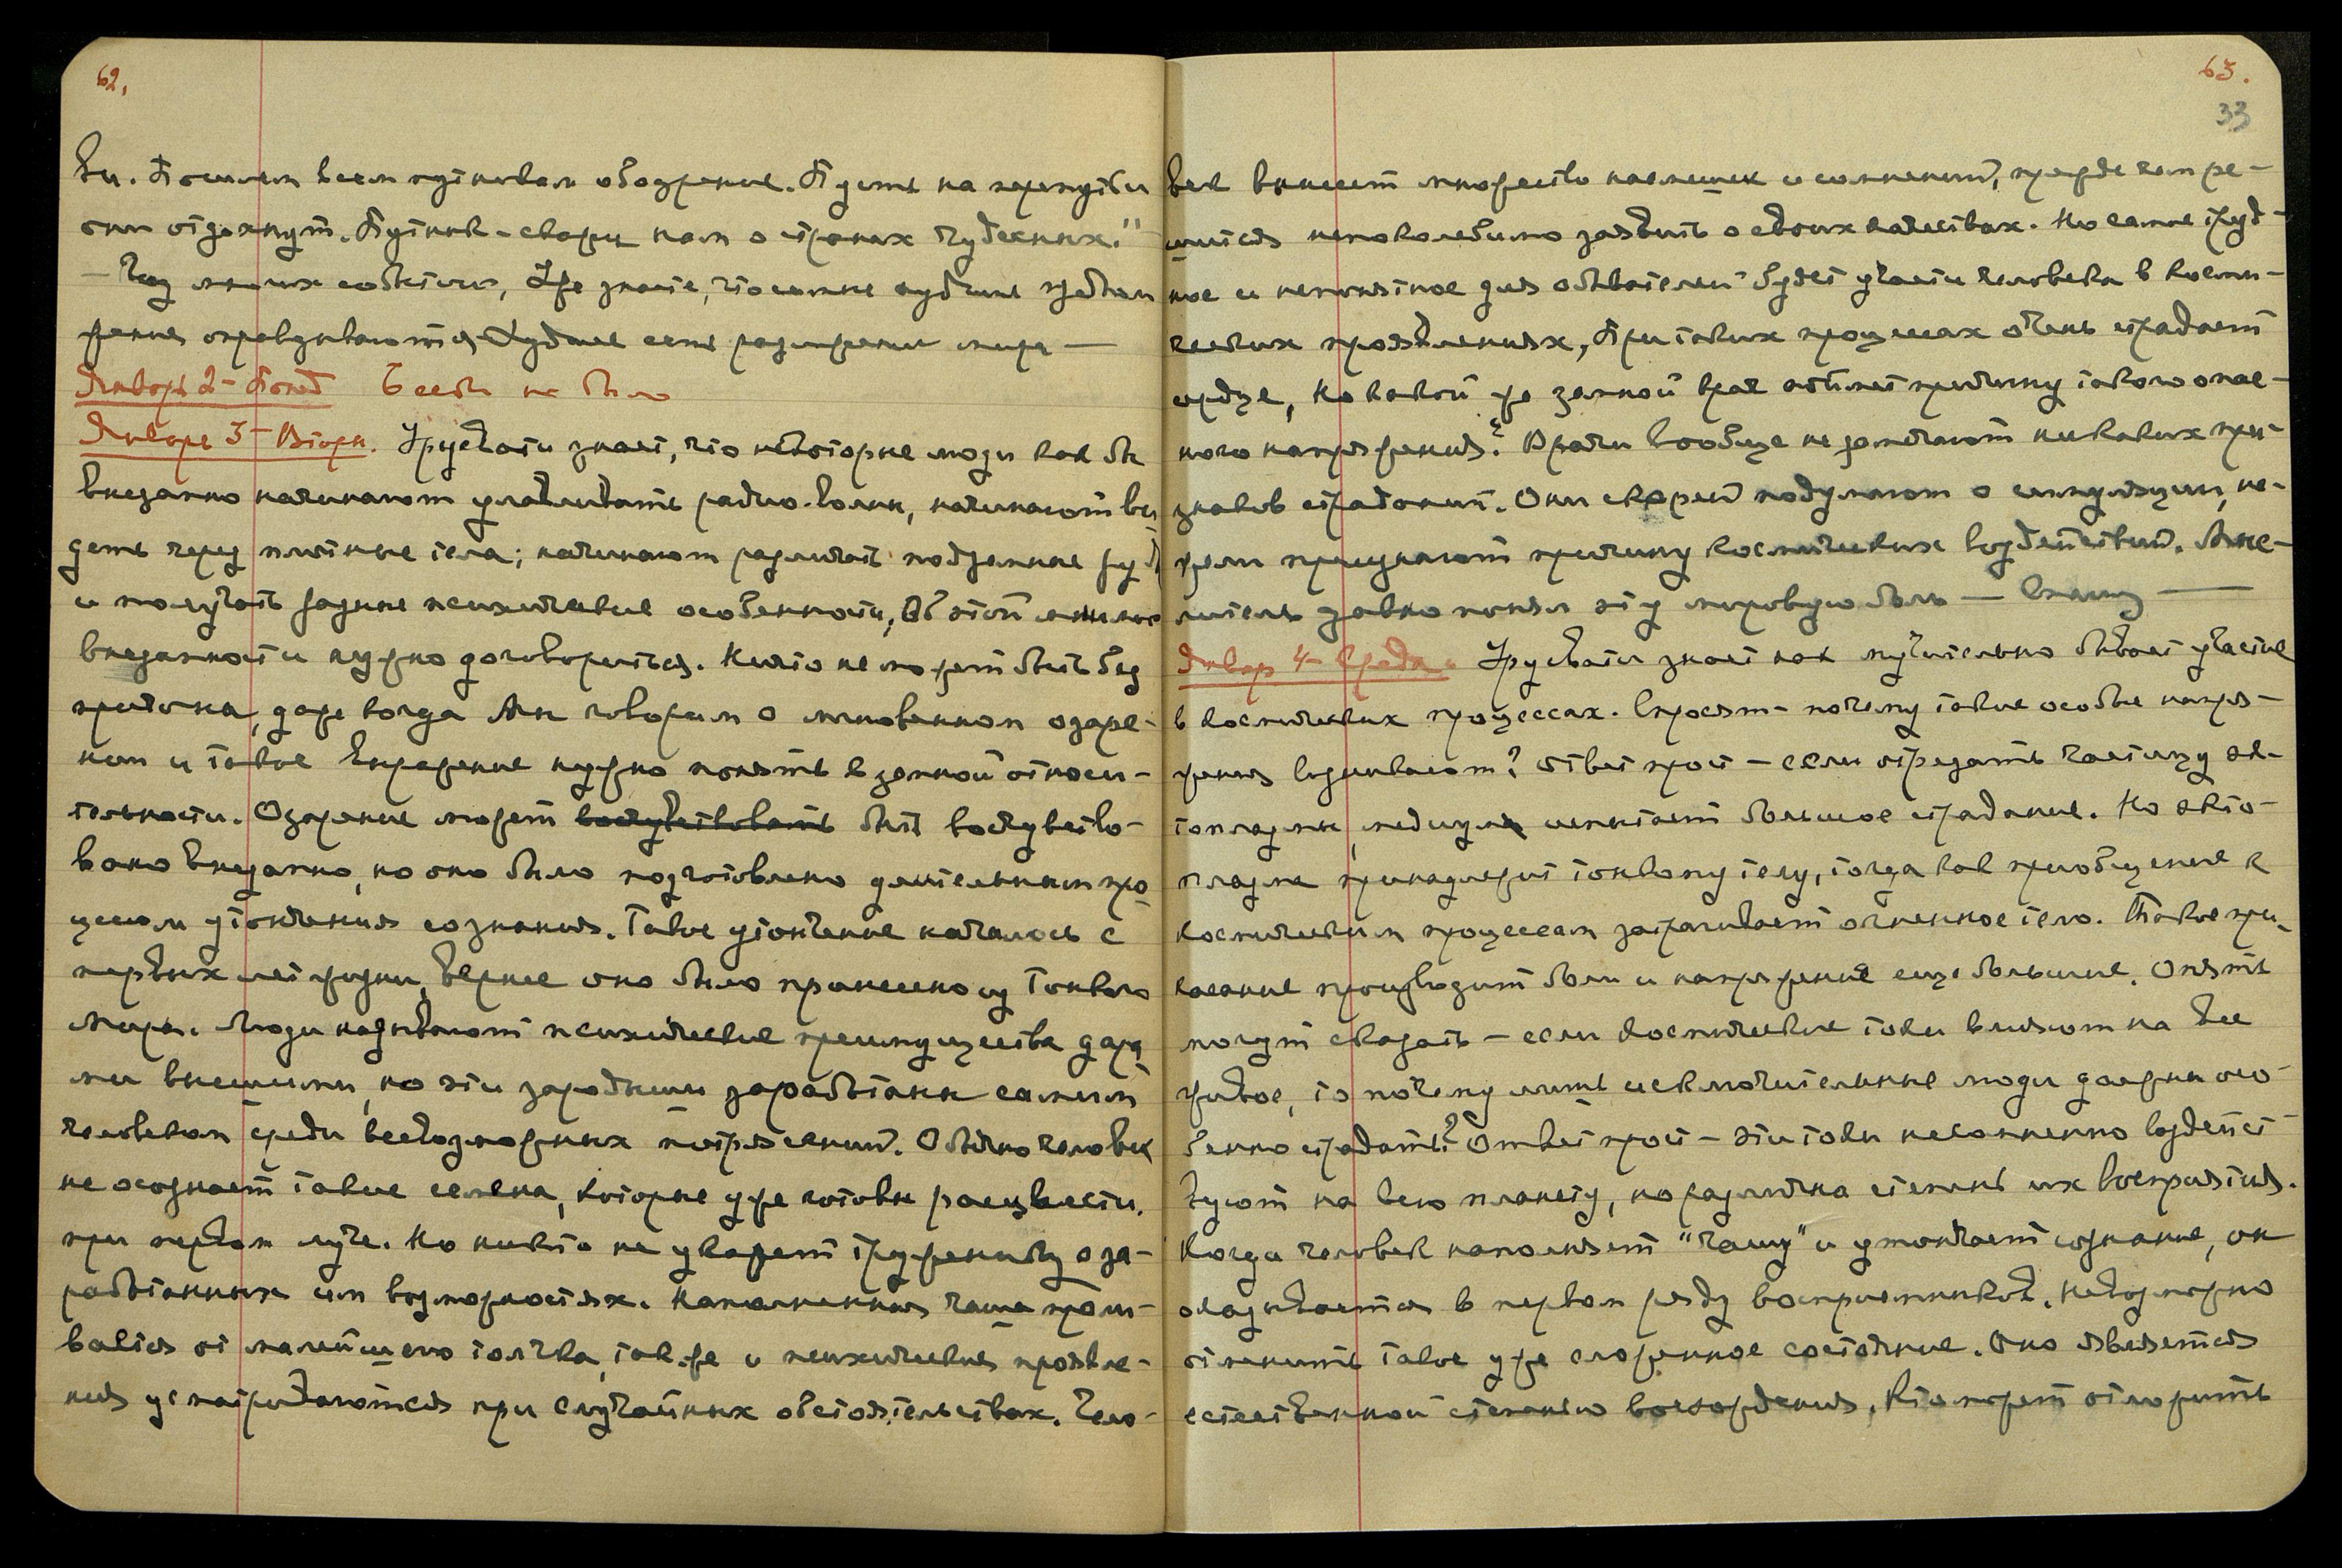 62.
ви. Пошлем всем путникам ободрение. Пусть на перепутьи
они отдохнут. Путник - скажи нам о странах чудесных."
— Над многих событий, Уже знаете, что самые худшие предполо-
жения оправдываются. Худшее есть разложение мира —
Январь 2 - Понед Беседы не было
Январь 3 - Вторн. Урусвати знает, что некоторые люди как бы
внезапно начинают улавливать радио-волны, начинают ви-
деть через плотные тела; начинают различать подземные руды
и получать разные психические особенности, Об этой мнимой
внезапности нужно договориться. Ничто не может быть без
причины, даже когда Мы говорим о мгновенном озаре-
нии и такое выражение нужно понять в земной относи-
тельности. Озарение может восчувствовать быть восчувство-
вано внезапно, но оно было подготовлено длительным про-
цессом утончения сознания. Такое утончение началось с
первых лет жизни, вернее оно было принесено из Тонкого
Мира. Люди называют психические преимущества дара-
ми высшими, но эти зародыши заработаны самим
человеком среди всевозможных потрясений. Обычно человек
не осознает такие семена, которые уже готовы расцвести
при первом луче. Но никто не укажет труженику о за-
работанных им возможностях. Наполненная чаша проли-
вается от малейшего толчка, так же и психические проявле-
ния усматриваются при случайных обстоятельствах. Чело-
63.
33
век вынесет множество насмешек и сомнений, прежде чем ре-
шится непоколебимо заявить о своих качествах. Но самое труд-
ное и непонятное для обывателей будет участие человека в косми-
ческих проявлениях, При таких процессах очень страдает
сердце, Но какой же земной врач объяснит причину такого опас-
ного напряжения? Врачи вообще не замечают никаких при-
знаков страданий. Они скорей подумают о симуляции, не-
жели признают причину космических воздействий. Мыс-
литель давно понял эту мировую боль —
Январ 4 - Среда. Урусвати знает как мучительно бывает участие
в космических процессах. Спросят - почему такие особые напря-
жения возникают? Ответ прост - если отрезать частицу эк-
топлазмы, медиум испытает большое страдание. Но экто-
плазма принадлежит тонкому телу, тогда как приобщение к
космическим процессам затрагивает огненное тело. Такое при-
касание производит боли и напряжение еще большие. Опять
могут сказать - если космические токи влияют на все
живое, то почему лишь исключительные люди должны осо-
бенно страдать? Ответ прост - эти токи несомненно воздейст-
вуют на всю планету, но различна степень их восприятия.
Когда человек наполняет "чашу" и утончает сознание, он
оказывается в первом ряду восприемников. Невозможно
отменить такое уже сложенное состояние. Оно является
естественной степенью восхождения, Кто может отложить